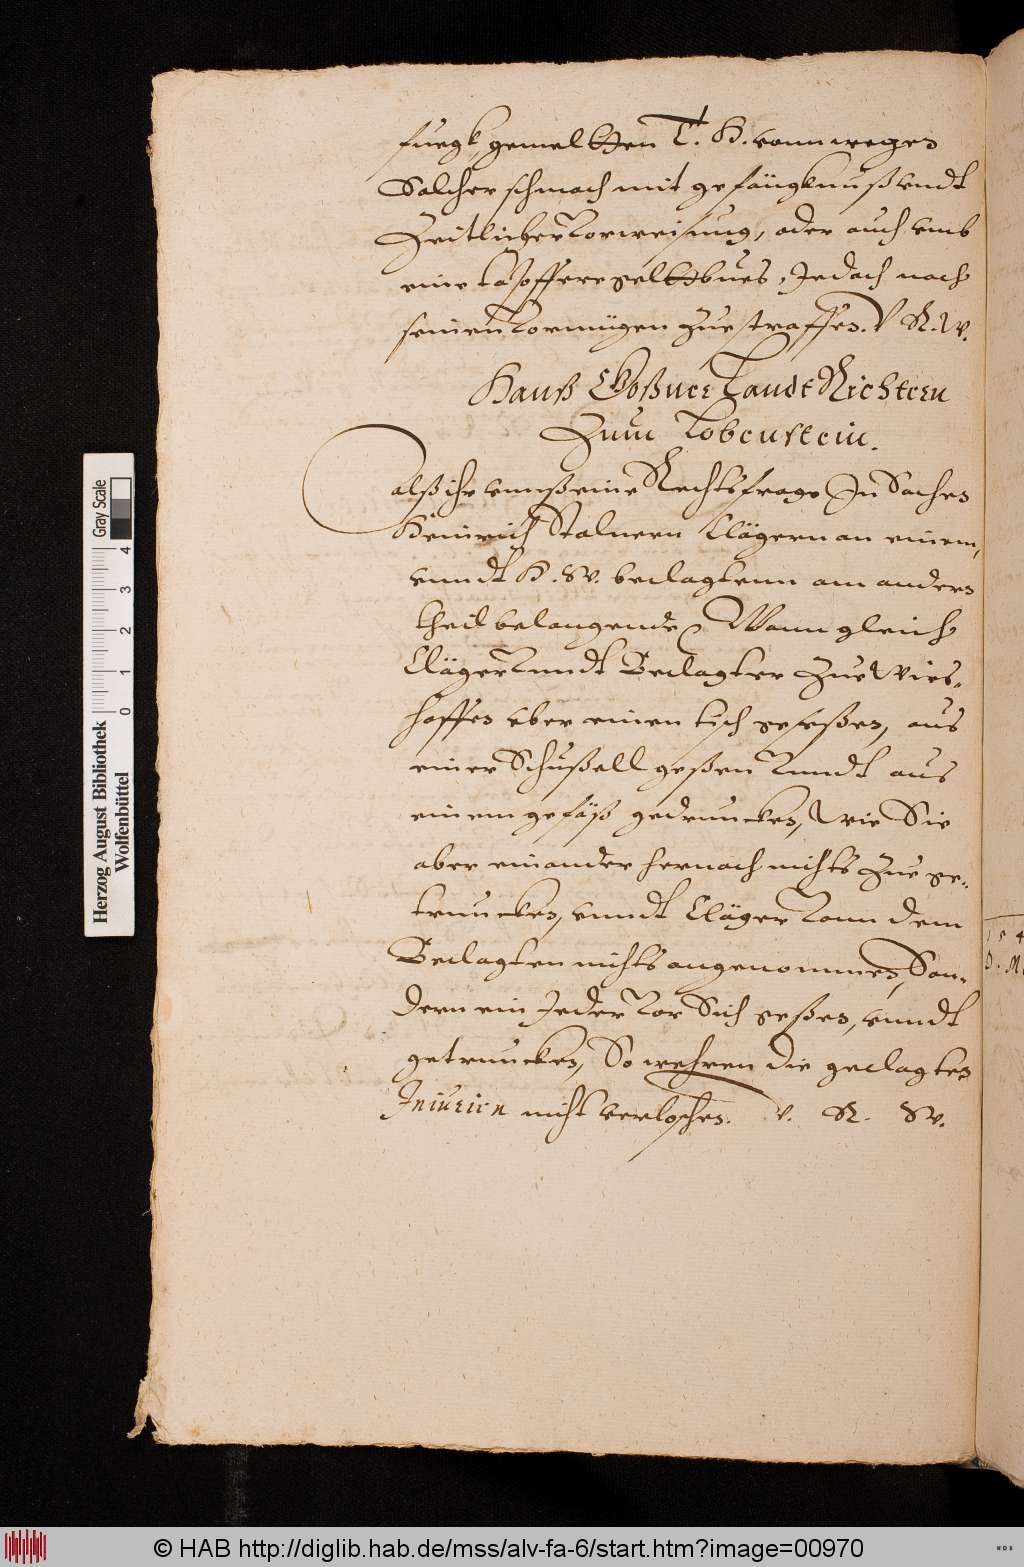 fuegk, gemeltten C. H. vonn wegen
Solcher schmach mit gefängknuß undt
Zeitlicher Vorweisung, oder auch umb
eine taposffere geltbues, Jedoch nach
seinen Vormügen zue straffen. V. R. W.
Hanß Goßner Landt Richtern
Zum Lobenstein.
Alß ihr unnß eine Rechtsfrage In Sachen
Heinrich Stalnern Clägern an einem,
unndt H. W. beclagtenn am andern
theil belangende, Wann gleich
Cläger Vnndt Beclagter zue Wies-
hoffen uber einen tisch geseßen, aus
einer Schußell geßen Vnndt aus
einem gefäß gedruncken, Wie Sie
aber einander hernach nichts zue ge-
truncken, unndt Cläger Vonn dem
Beclagten nichts angenommen, Son-
dern ein Jeder Vor Sich geßen, unndt
getruncken, So wehren die geclagten
Iniurien nicht verloschen. V. R. W.
1 5 4
D. M
Herzog August Bibliothek
Wolfenbüttel
Gray Scale
0 1 2 3 4
© HAB http://diglib.hab.de/mss/alv-fa-6/start.htm?image=00970
WDB